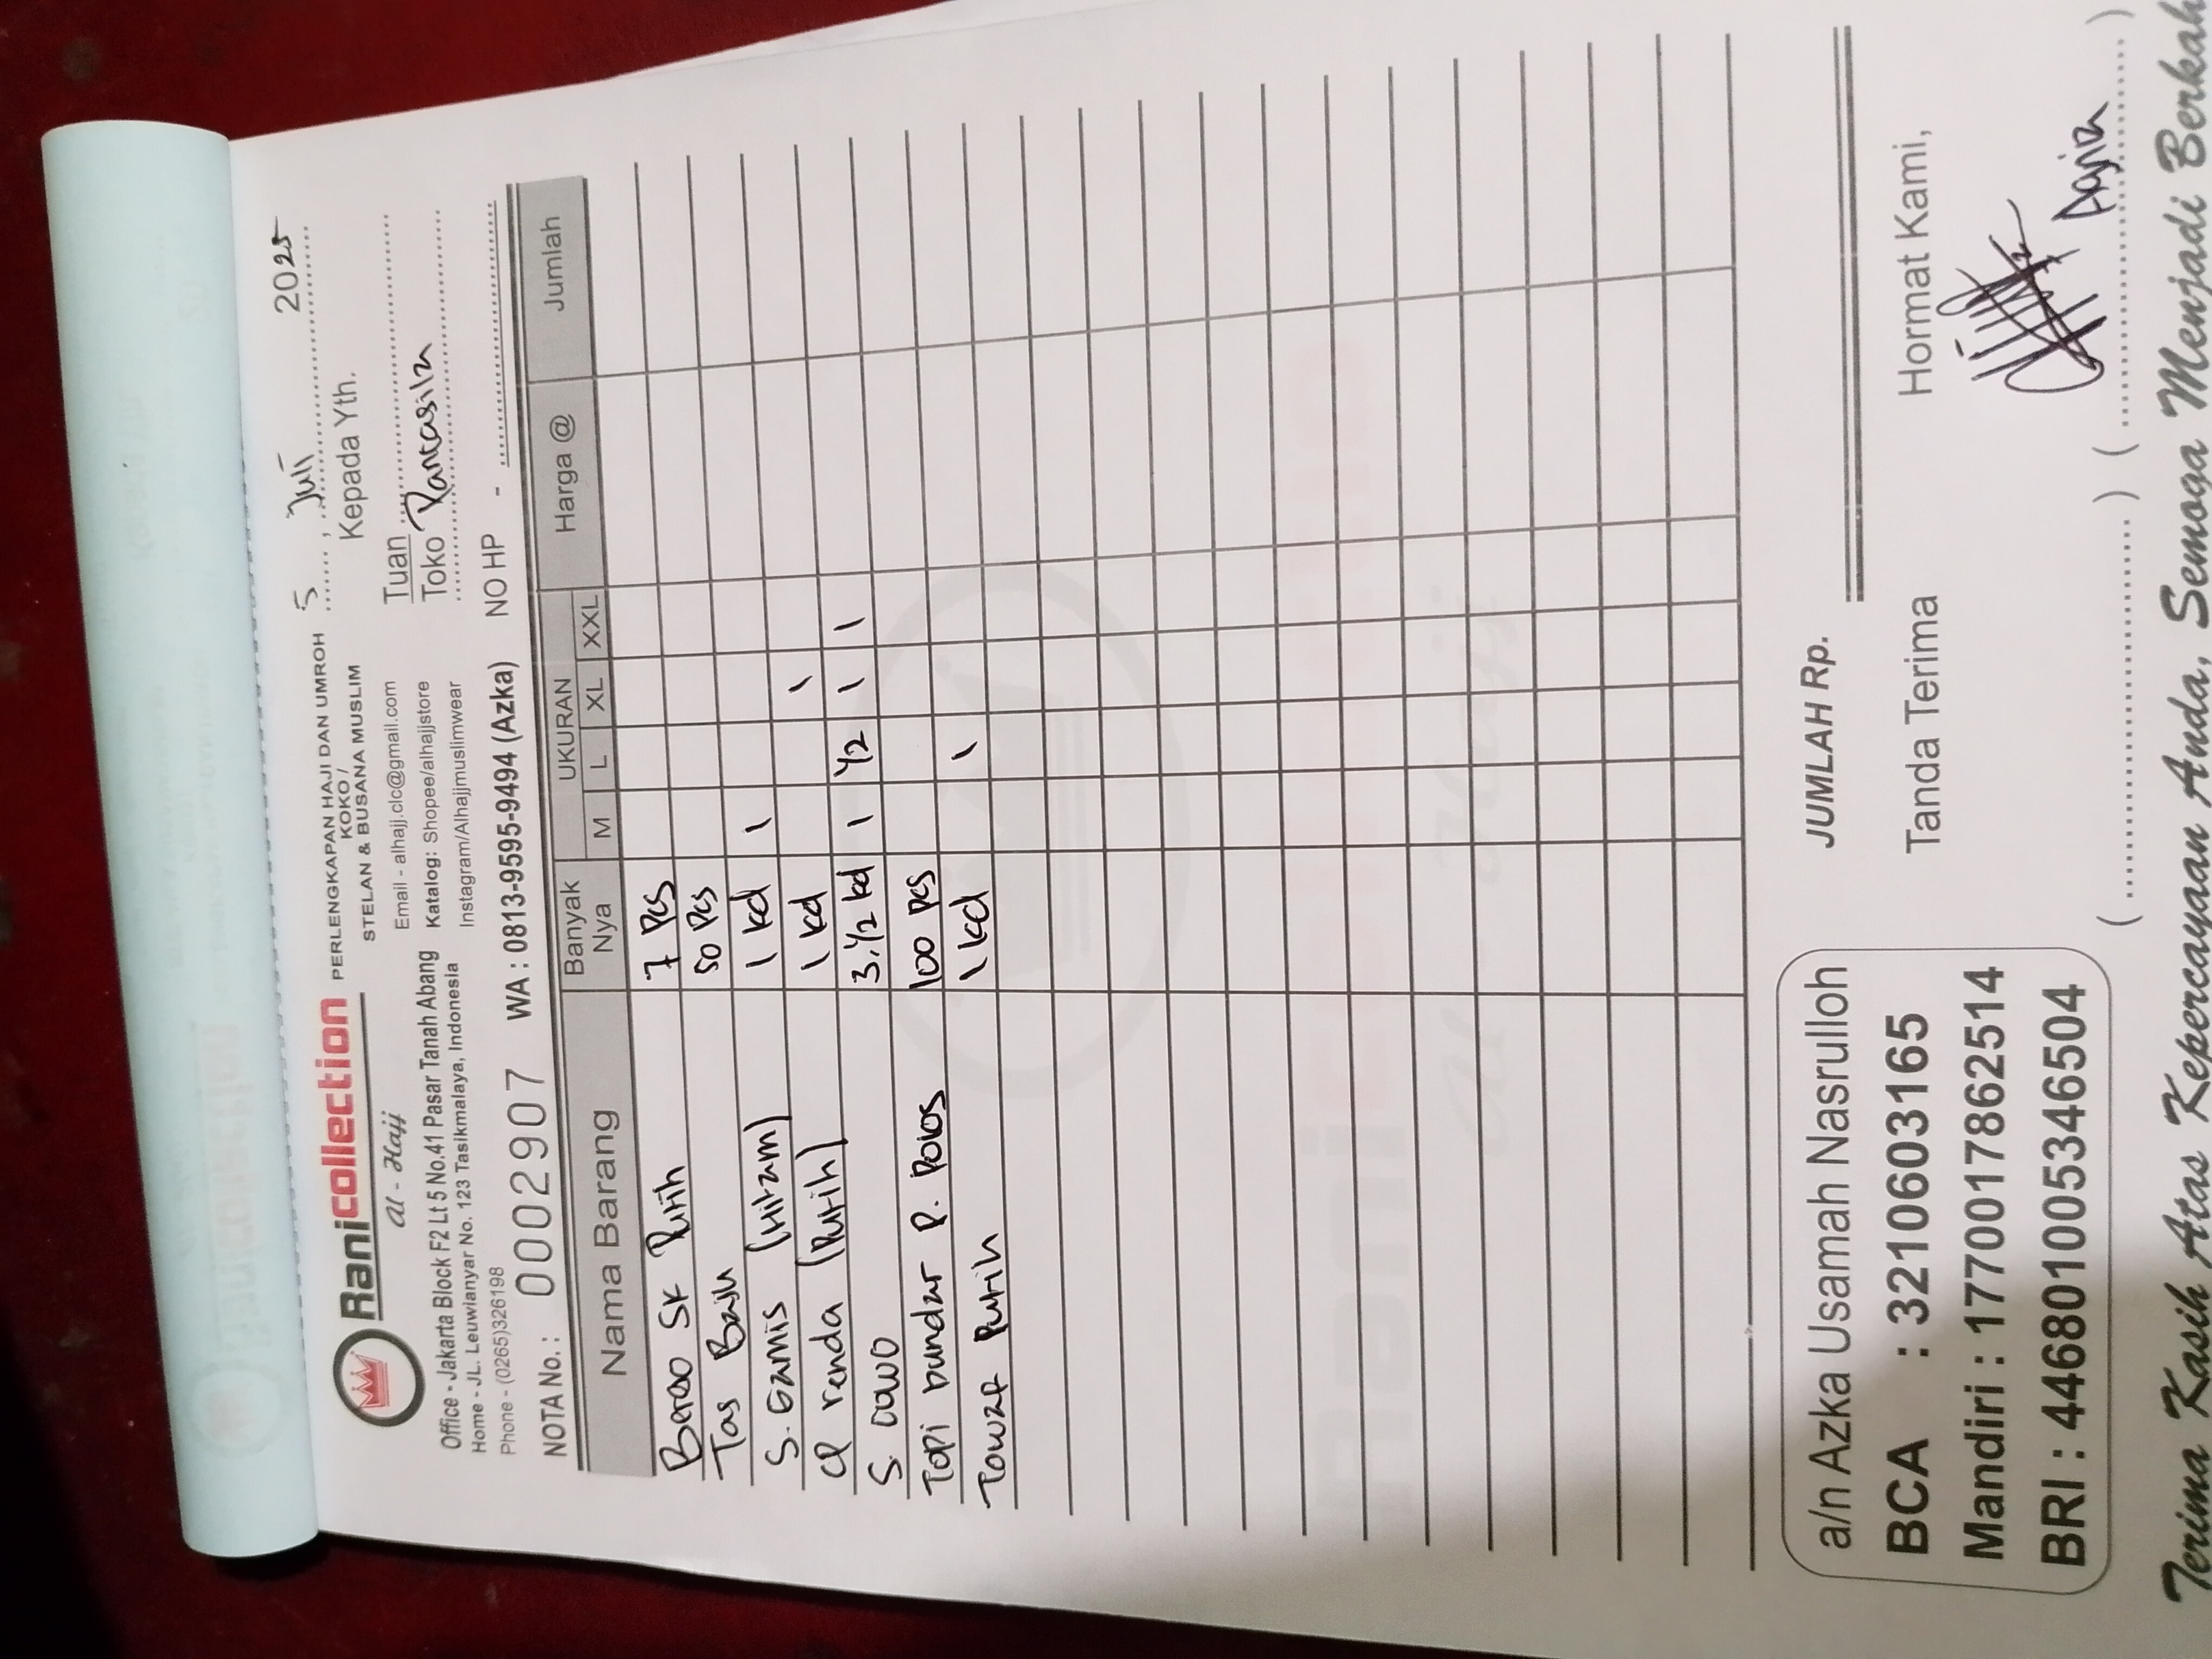 Ranicollection
al - Hajj
PERLENGKAPAN HAJI DAN UMROH
KOKO /
STELAN & BUSANA MUSLIM
Office - Jakarta Block F2 Lt 5 No.41 Pasar Tanah Abang
Home - JL. Leuwianyar No. 123 Tasikmalaya, Indonesia
Phone - (0265)326198
Email - alhajj.clc@gmail.com
Katalog: Shopee/alhajjstore
Instagram/Alhajjmuslimwear
5, Juli 2025
Kepada Yth.
Tuan
Toko Pancasila
NOTA No.: 0002907 WA : 0813-9595-9494 (Azka) NO HP -
Nama Barang Banyak Nya UKURAN M L XL XXL Harga @ Jumlah
SK Putih 7 Pcs
Tas 50 Pcs
S. Gamis (Hitam) 1 kd 1
CP renda (Putih) 1 kd 1
S. cowo 3,1/2 kd 1 1/2 1 1
Topi bundar P. Polos 100 pcs
Towaf Putih 1 kd 1
JUMLAH Rp.
a/n Azka Usamah Nasrulloh
BCA : 3210603165
Mandiri : 1770017862514
BRI : 446801005346504
Tanda Terima Hormat Kami,
(..............................) (..............................)
Terima Kasih Atas Kepercayaan Anda, Semoga Menjadi Berkah